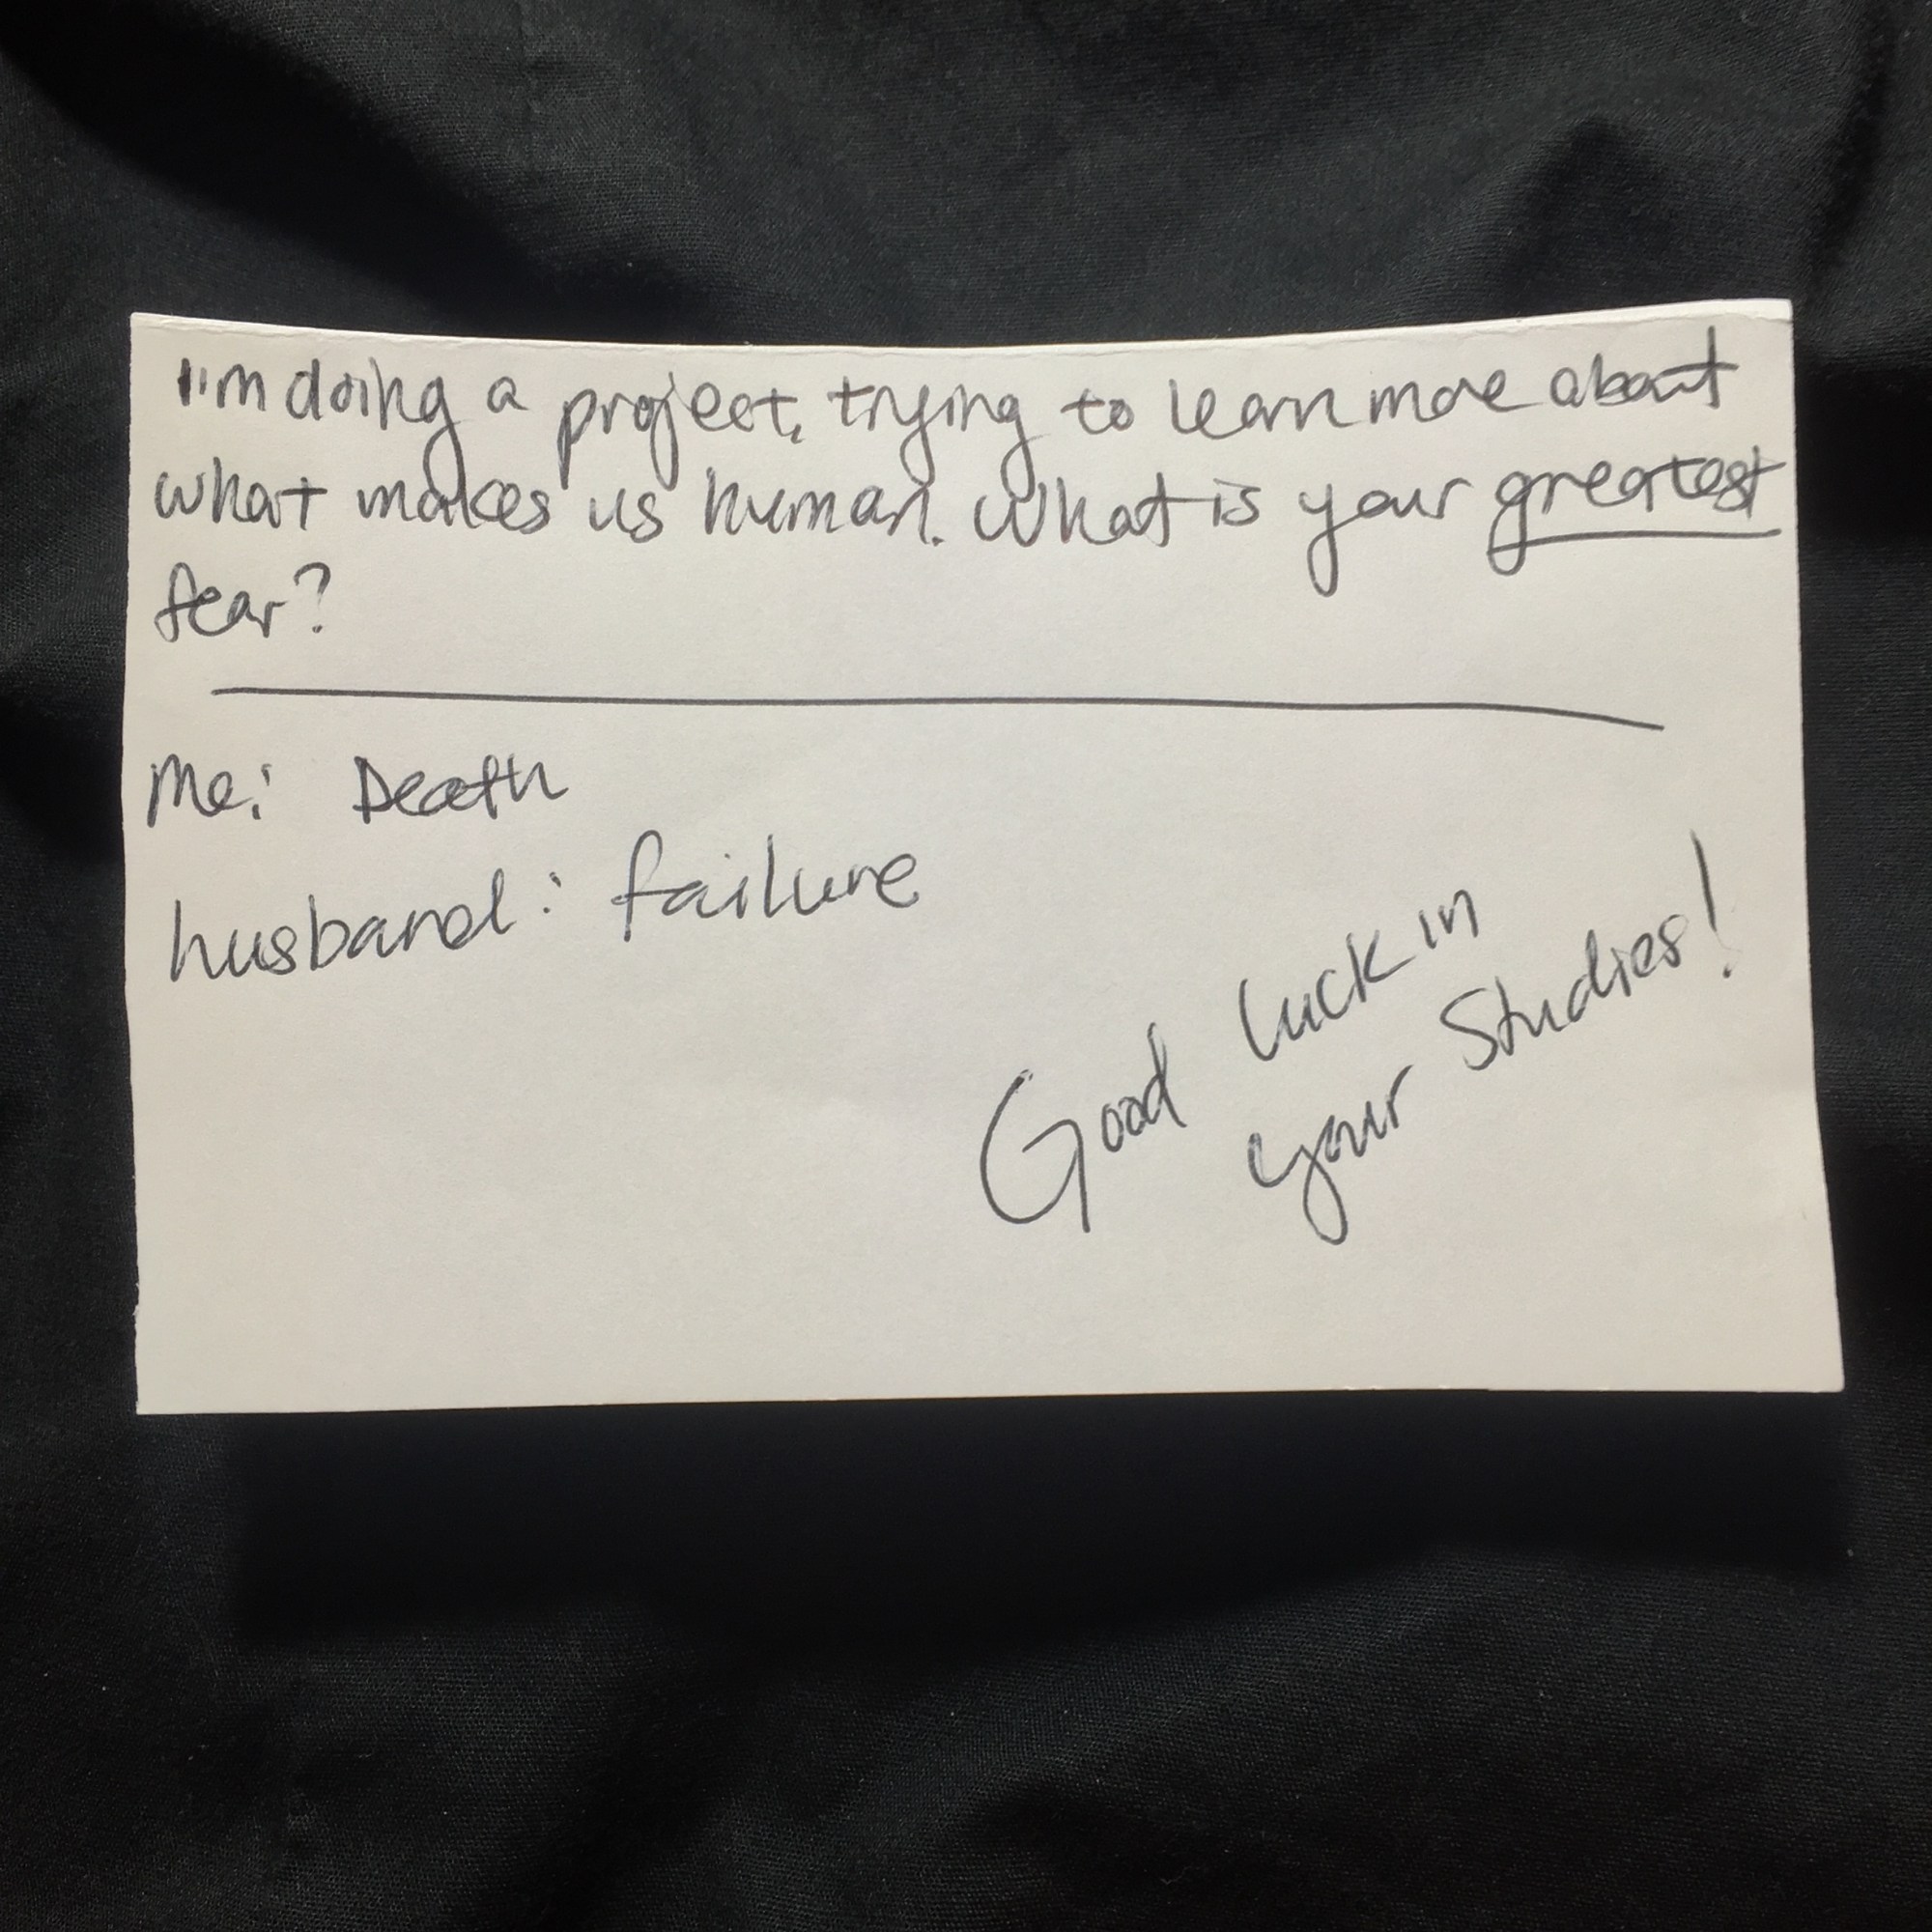 I'm doing a project, trying to learn more about
what makes us human. What is your greatest
fear?
Me: Death
husband: failure
Good luck in
your Studies!